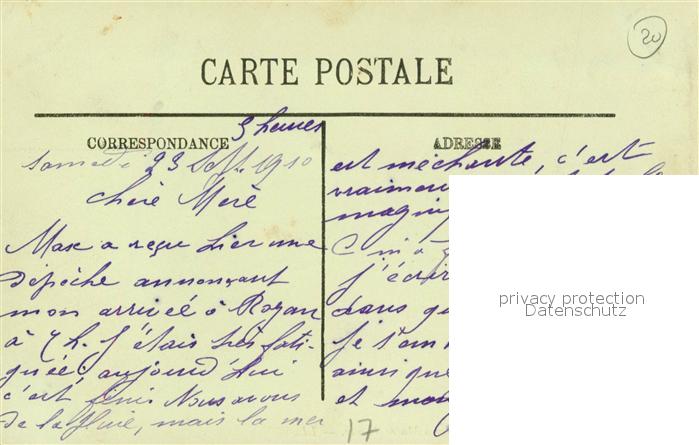 20
CARTE POSTALE
CORRESPONDANCE
ADRESSE
3 heures
Samedi 23 Sept. 1910
Chère Mère
Max a reçu hier une
dépêche annonçant
mon arrivée à Royan
à 7 h. J'étais très fati-
guée, aujourd'hui
c'est fini. Nous avons
de la pluie, mais la mer
est méchante, c'est
vraimen
magnif
J'écri
dans
Je t'em
ainsi que
et
17
privacy protection
Datenschutz